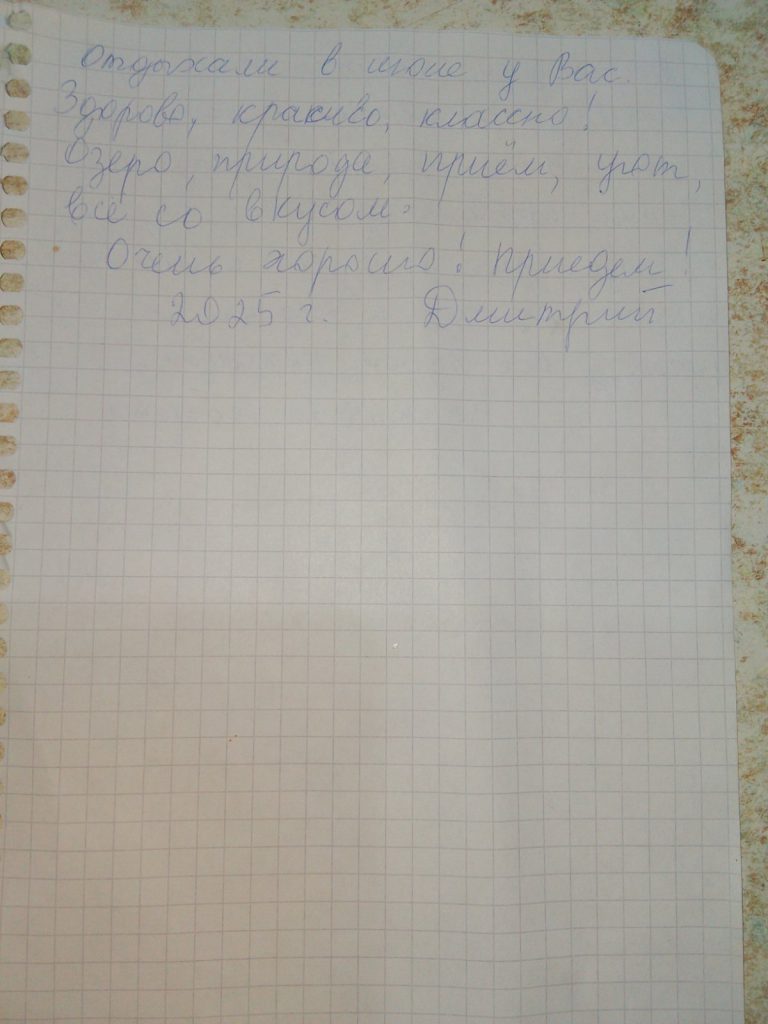 Отдыхали в июне у Вас.
Здорово, красиво, классно!
Озеро, природа, приём, уют,
всё со вкусом.
Очень хорошо! Приедем!
2025 г. Дмитрий